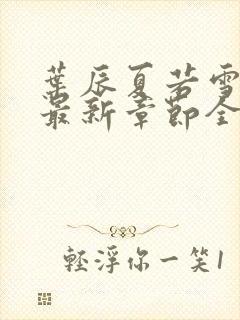 葉辰夏若雪
最新章節全
輕浮你一笑1